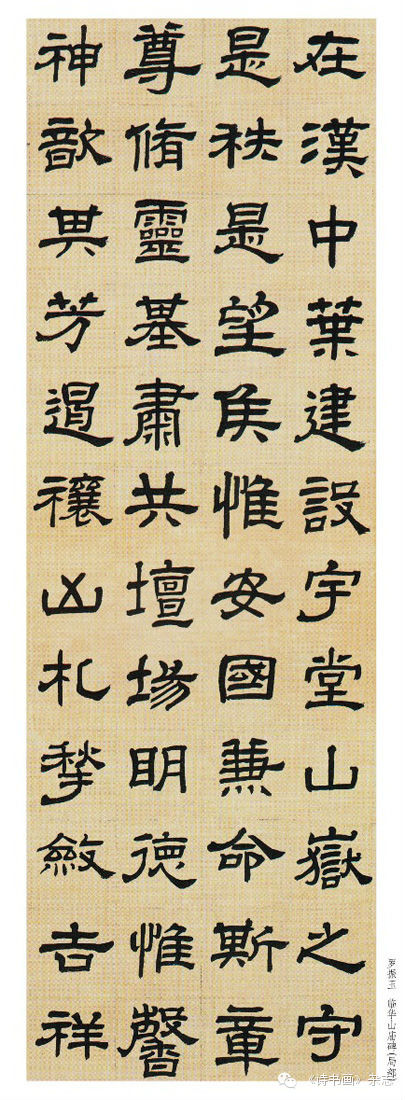 在漢中葉建設宇堂山嶽之守
是秩是望侯惟安國兼命斯章
尊脩靈基肅共壇場明德惟馨
神歆其芳遏禳凶札揫斂吉祥
罗振玉 临华山庙碑(局部)
《诗书画》杂志